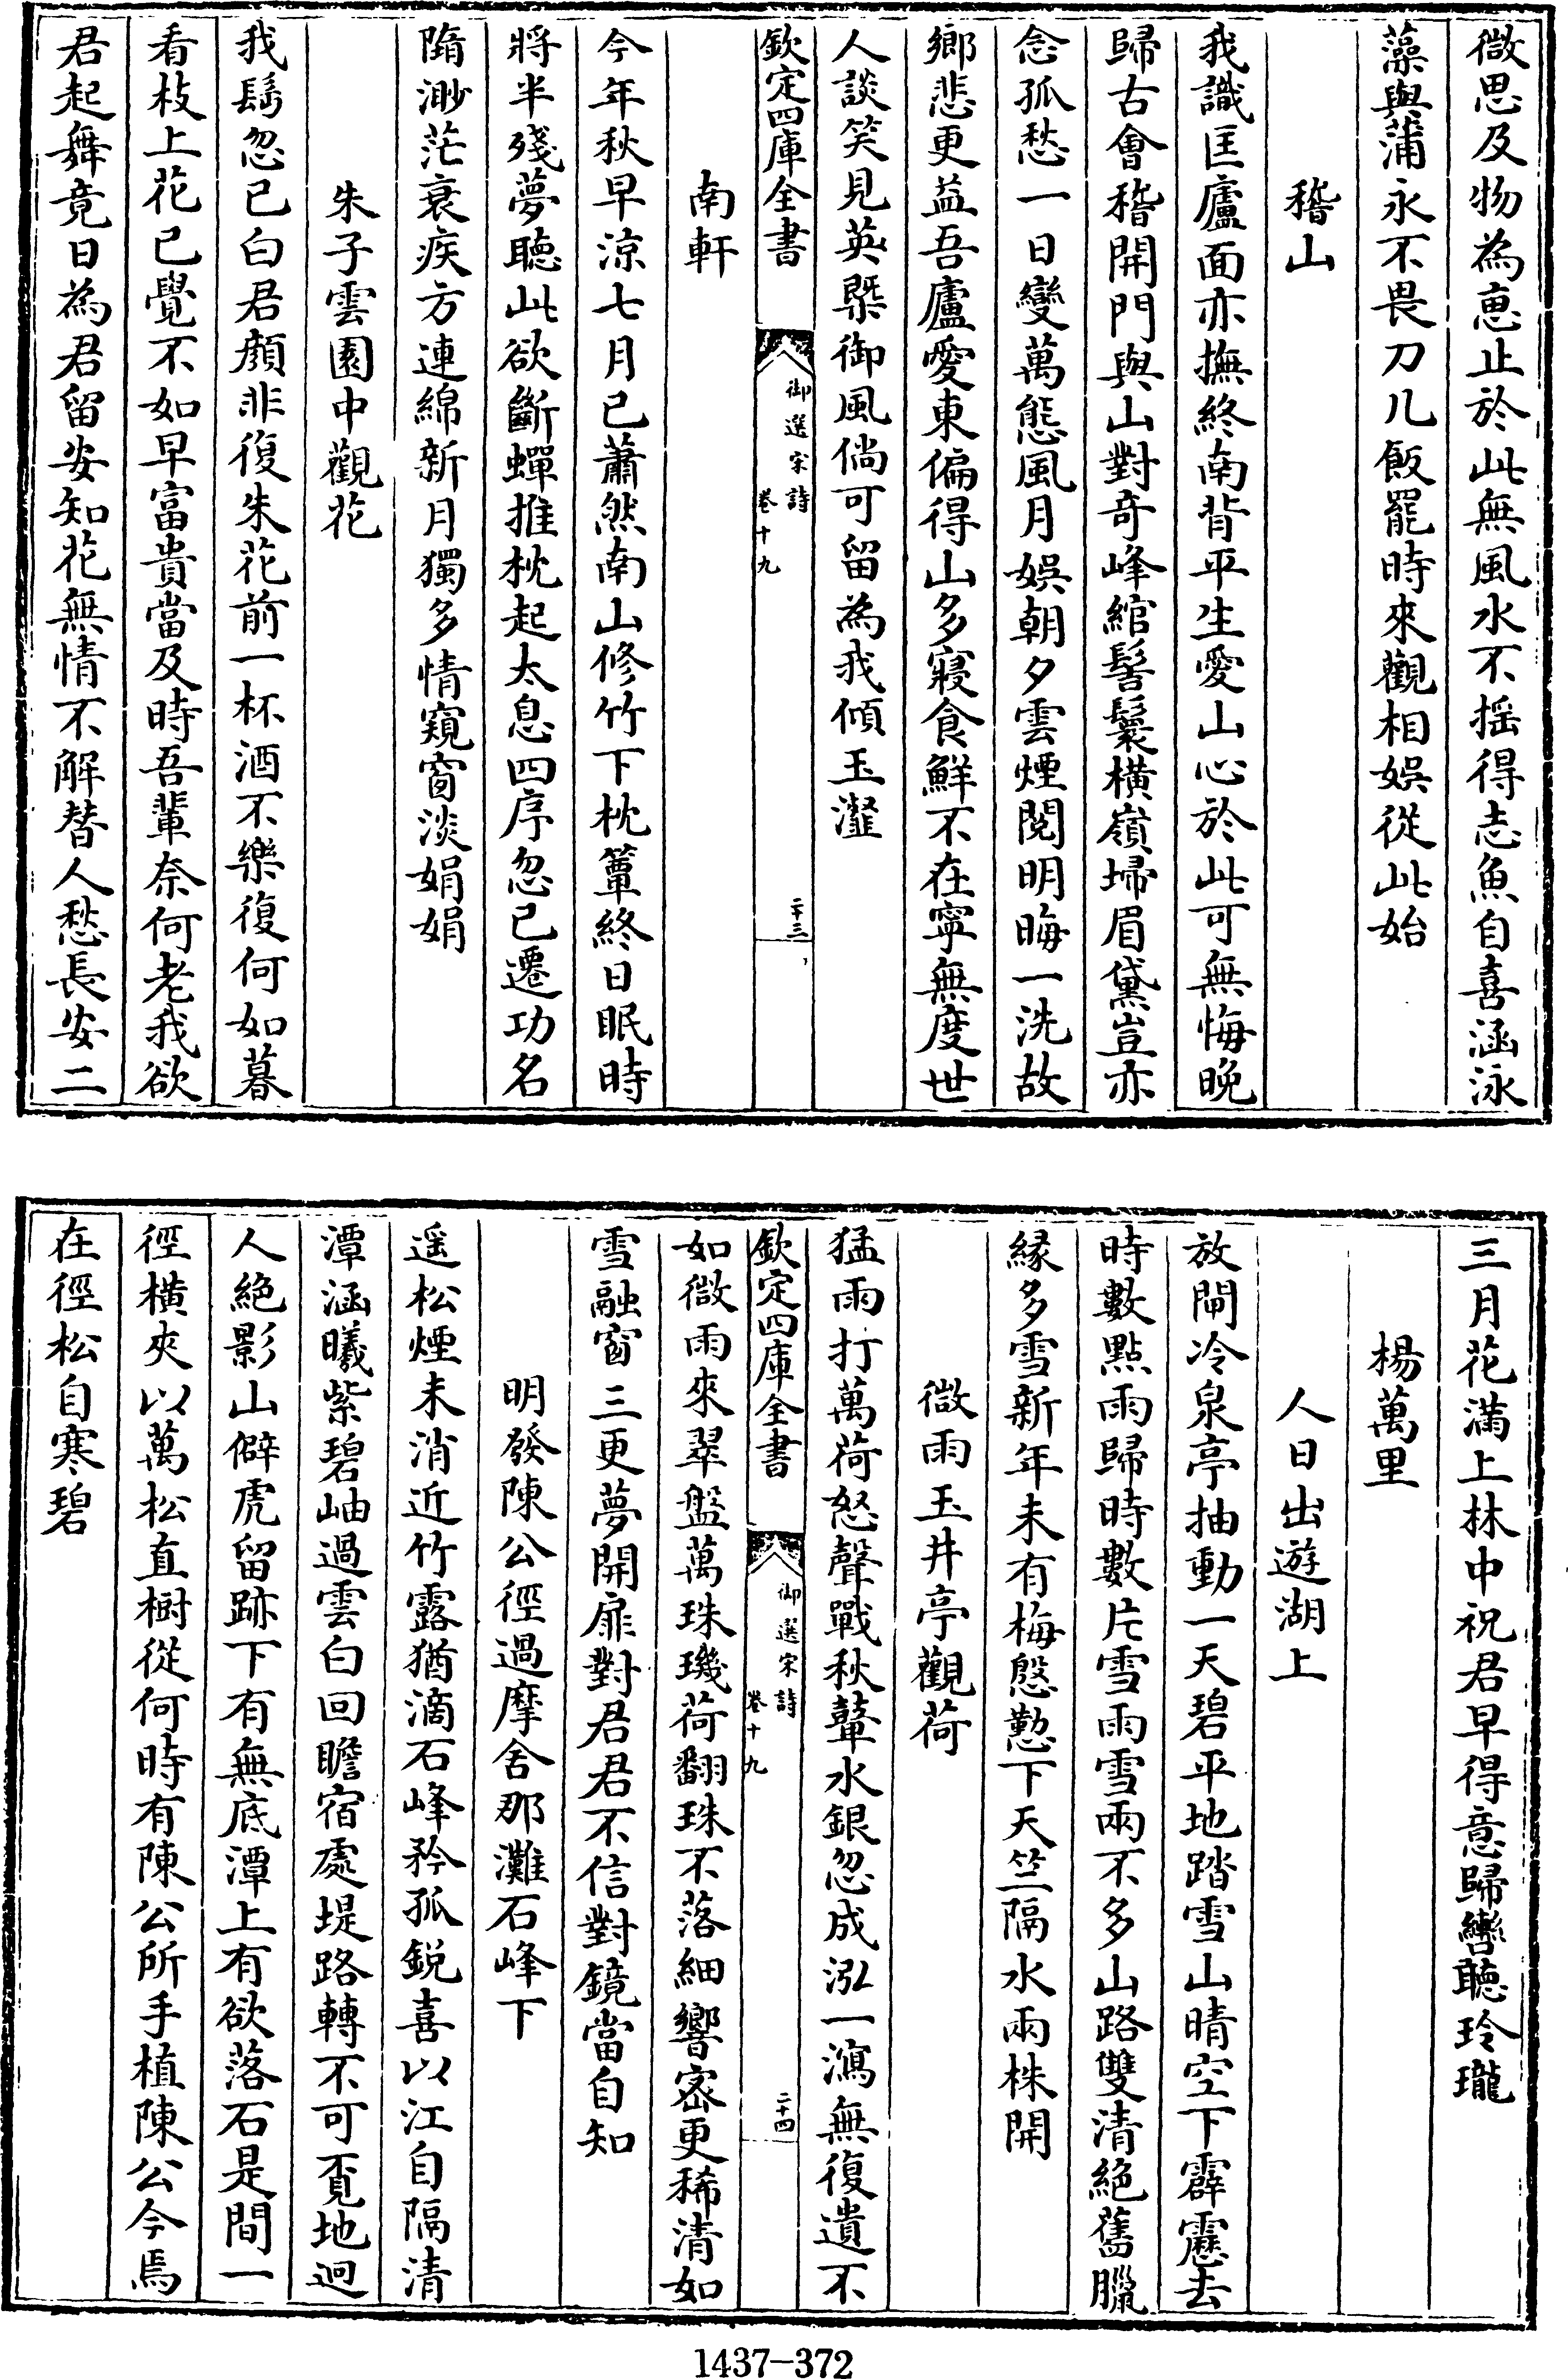 微思及物為恵止於此無風水不揺得志魚自喜涵泳
藻與蒲永不畏刀几飯罷時來觀相娯從此始
稽山
我識匡廬面亦撫終南背平生愛山心於此可無悔晚
歸古會稽開門與山對奇峰綰髻鬟橫嶺埽眉黛豈亦
念孤愁一日變萬態風月娯朝夕雲煙閱明晦一洗故
鄉悲更益吾廬愛東偏得山多寢食鮮不在寧無度世
人談笑見英槩御風倘可留為我傾玉瀣
欽定四庫全書
御選宋詩
卷十九
二十三
南軒
今年秋早涼七月已蕭然南山修竹下枕簟終日眠時
將半殘夢聽此欲斷蟬推枕起太息四序忽已遷功名
隋渺茫衰疾方連綿新月獨多情窺窗淡娟娟
朱子雲園中觀花
我髩忽已白君顔非復朱花前一杯酒不樂復何如暮
看枝上花已覺不如早富貴當及時吾輩奈何老我欲
君起舞竟日為君留安知花無情不解替人愁長安二
三月花滿上林中祝君早得意歸轡聽玲瓏
楊萬里
人日出遊湖上
放閘冷泉亭抽動一天碧平地踏雪山晴空下霹靂去
時數點雨歸時數片雪雨雪兩不多山路雙清絶舊臘
縁多雪新年未有梅慇懃下天竺隔水兩株開
微雨玉井亭觀荷
猛雨打萬荷怒聲戰秋鼙水銀忽成泓一瀉無復遺不
欽定四庫全書
御選宋詩
卷十九
二十四
如微雨來翠盤萬珠璣荷翻珠不落細響宻更稀清如
雪融窗三更夢開扉對君君不信對鏡當自知
明發陳公徑過摩舍那灘石峰下
遥松煙未消近竹露猶滴石峰矜孤鋭喜以江自隔清
潭涵曦紫碧岫過雲白回瞻宿處堤路轉不可覔地迥
人絶影山僻虎留跡下有無底潭上有欲落石是間一
徑橫夾以萬松直樹從何時有陳公所手植陳公今焉
在徑松自寒碧
1437-372